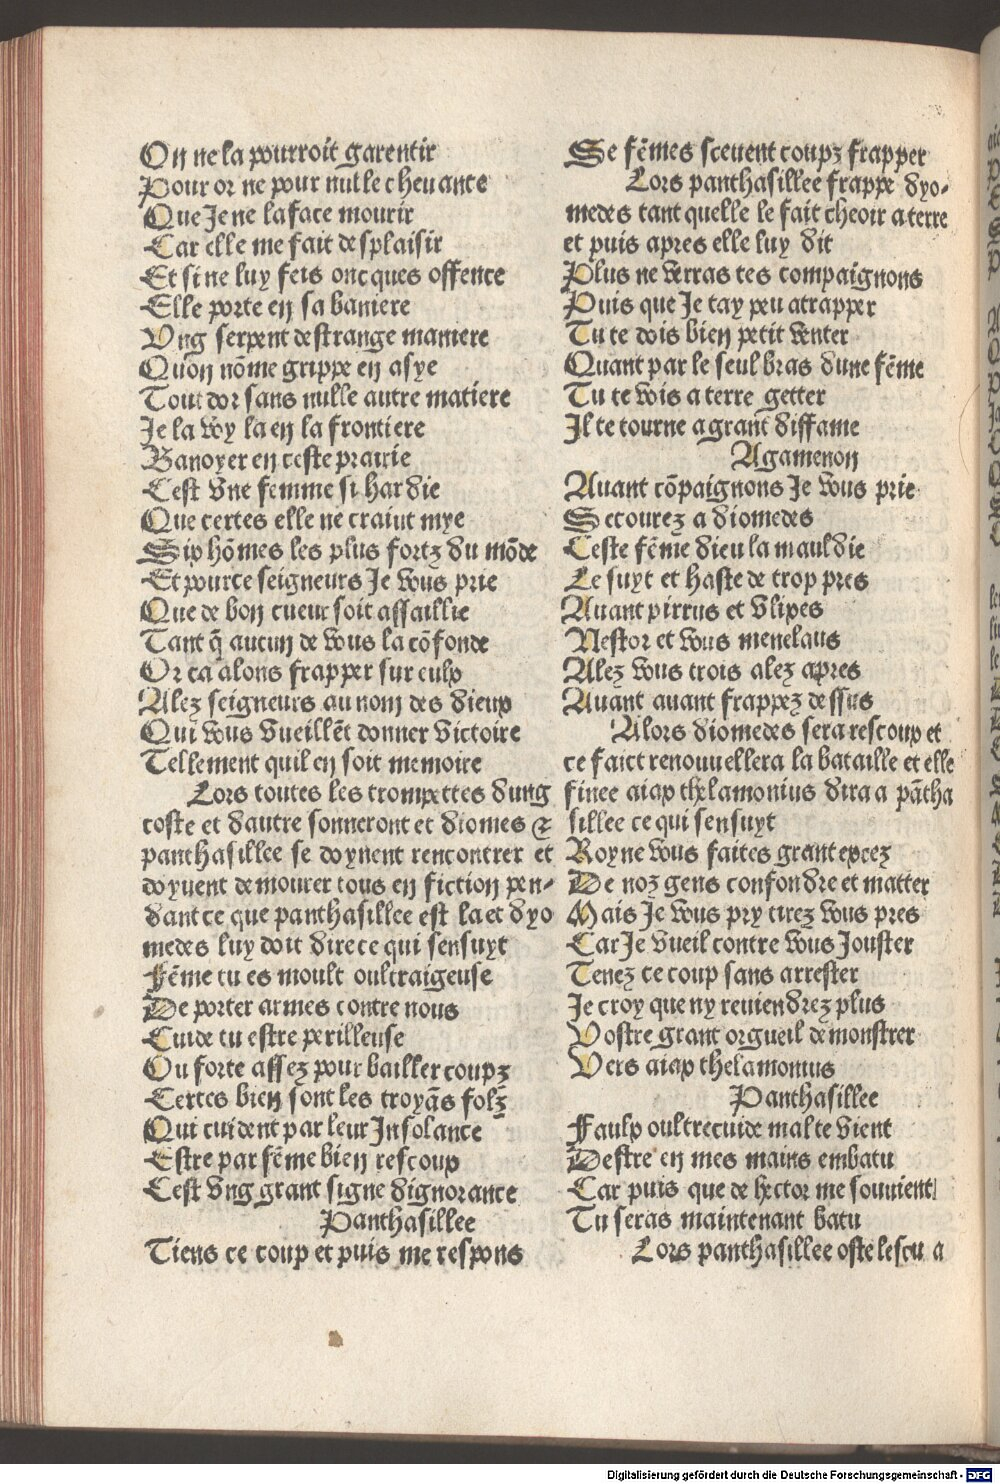 On ne la pourroit garentir
Pour or ne pour nulle chevance
Que Je ne la face mourir
Car elle me fait desplaisir
Et si ne luy feis oncques offence
Elle porte en sa baniere
Vng serpent destrange maniere
Quon nōme grippe en asye
Tout dor sans nulle autre matiere
Je la voy la en la frontiere
Banoyer en ceste prairie
Cest vne femme si hardie
Que certes elle ne craint mye
Six hōmes les plus fortz du mōde
Et pource seigneurs Je vous prie
Que de bon cueur soit assaillie
Tant q̄ aucun de vous la cōfonde
Or ca alons frapper sur eulx
Alez seigneurs au nom des dieux
Qui vous vueillēt donner victoire
Tellement quil en soit memoire
Lors toutes les trompettes dung
coste et dautre sonneront et diomes ⁊
panthasillee se doyuent rencontrer et
doyuent demourer tous en fiction pen-
dant ce que panthasillee est la et dyo
medes luy doit dire ce qui sensuyt
Fēme tu es moult oultraigeuse
De porter armes contre nous
Cuide tu estre perilleuse
Ou forte assez pour bailler coupz
Certes bien sont les troyās folz
Qui cuident par leur Insolance
Estre par fēme bien rescoux
Cest vng grant signe dignorance
Panthasillee
Tiens ce coup et puis me respons
Se fēmes sceuent coupz frapper
Lors panthasillee frappe dyo-
medes tant quelle le fait cheoir a terre
et puis apres elle luy dit
Plus ne verras tes compaignons
Puis que Je tay peu atrapper
Tu te dois bien petit venter
Quant par le seul bras dune fēme
Tu te vois a terre getter
Il te tourne a grant diffame
Agamenon
Auant cōpaignons Je vous prie
Secourez a diomedes
Ceste fēme dieu la mauldie
Le suyt et haste de trop pres
Auant pirrus et vlixes
Nestor et vous menelaus
Alez vous trois alez apres
Auant auant frappez dessus
Alors diomedes sera rescoux et
ce faict renouuellera la bataille et elle
finee aiax thelamonius dira a pātha
sillee ce qui sensuyt
Royne vous faites grant excez
De noz gens confondre et matter
Mais Je vous pry tirez vous pres
Car Je vueil contre vous Jouster
Tenez ce coup sans arrester
Je croy que ny reuiendrez plus
Vostre grant orgueil demonstrer
Vers aiax thelamonius
Panthasillee
Faulx oultrecuide mal te vient
Destre en mes mains embatu
Car puis que de hector me souuient
Tu seras maintenant batu
Lors panthasillee oste lescu a
Digitalisierung gefördert durch die Deutsche Forschungsgemeinschaft - DFG